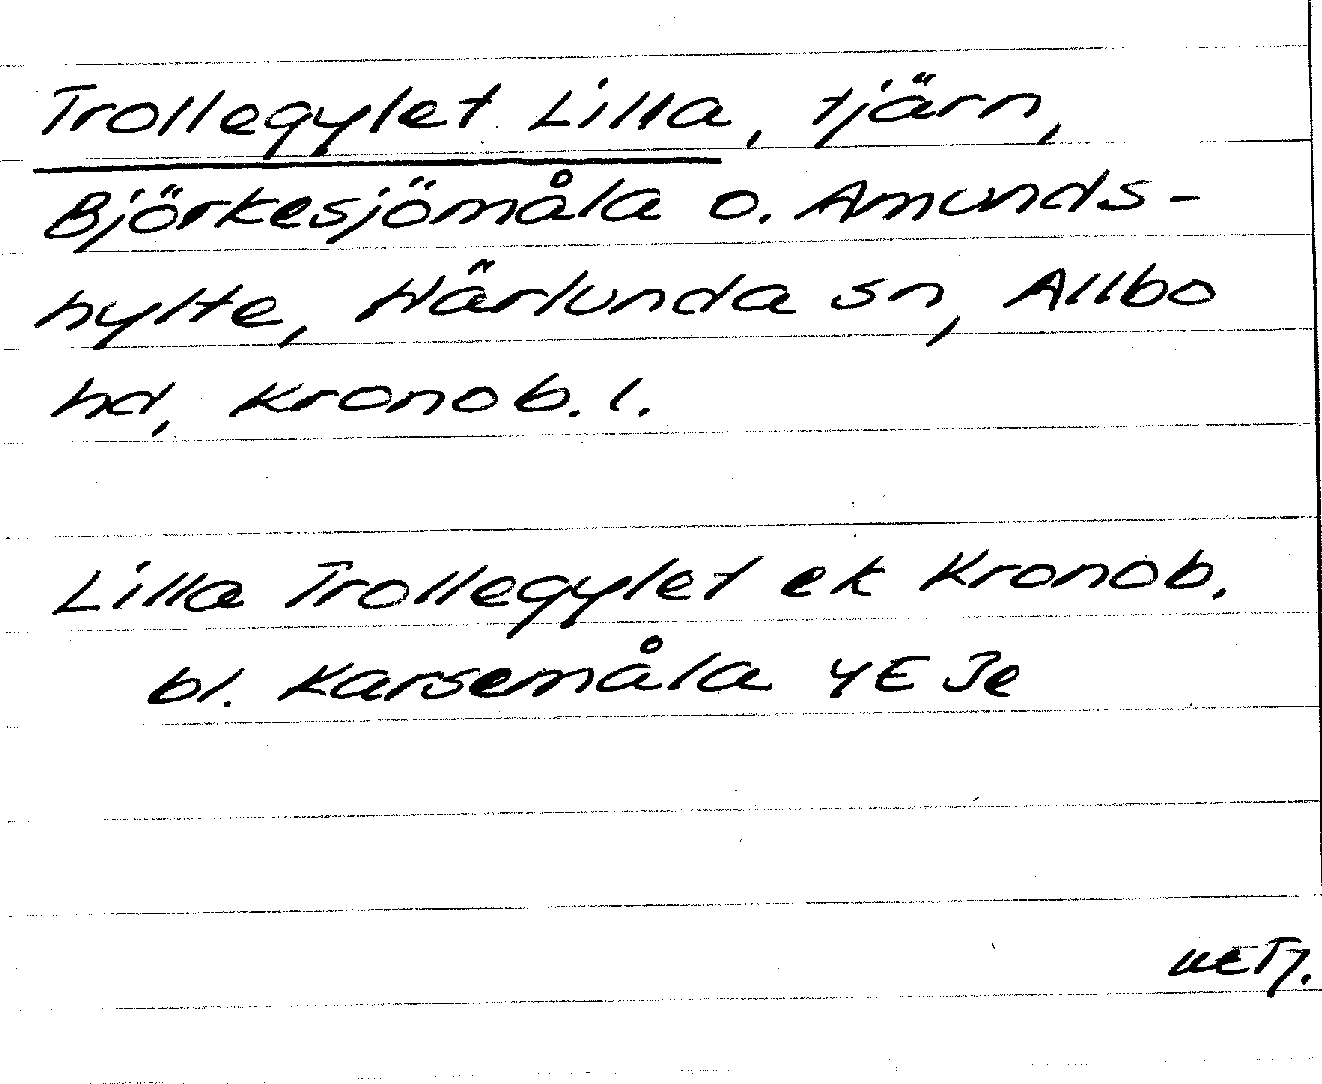 Trollegylet Lilla, tjärn,
Björkesjömåla o. Amunds-
hylte, Härlunda sn, Allbo
hd, Kronob. l.
Lilla Trollegylet ek Kronob.
bl. Karsemåla 4E Je